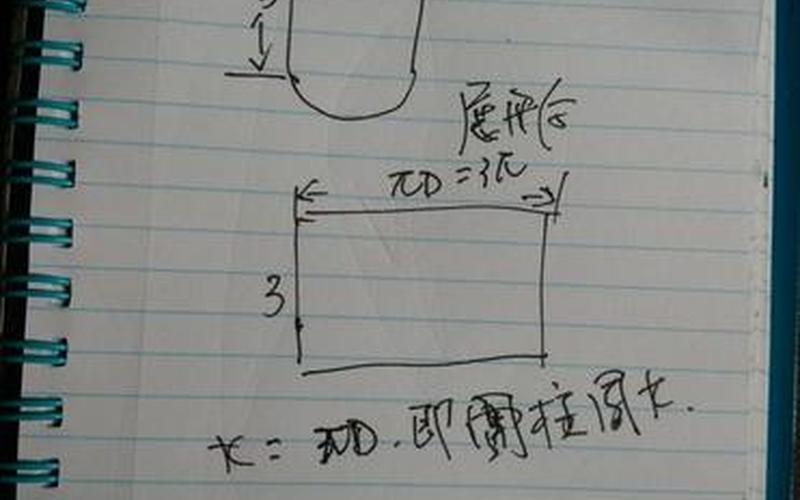 展开后
πD=3π
3
长=πD.即圆柱周长.